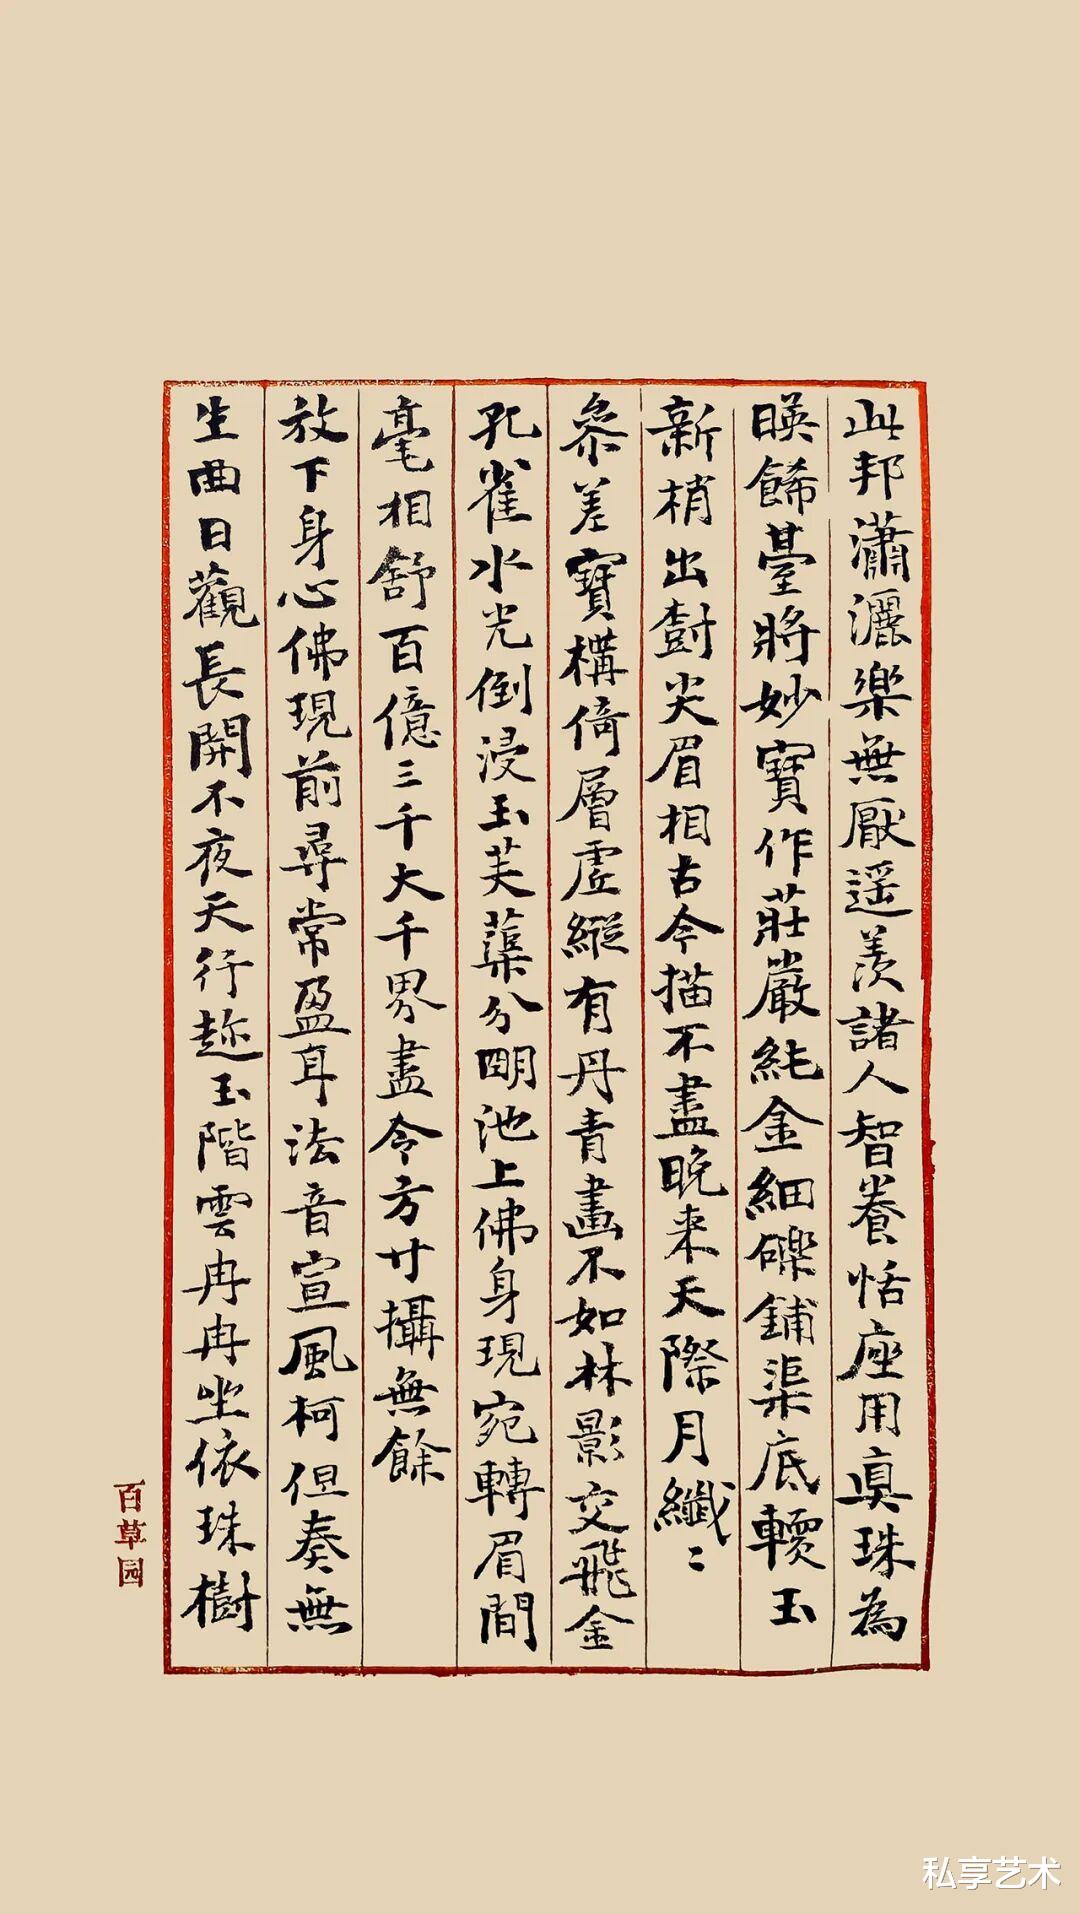 此邦瀟灑樂無厭遥羨諸人智養恬座用真珠為
暎飾臺將妙寶作莊嚴純金細礫鋪渠底輭玉
新梢出樹尖眉相古今描不盡晚来天際月纖〻
參差寶構倚層虛縱有丹青畫不如林影交飛金
孔雀水光倒浸玉芙蕖分明池上佛身現宛轉眉間
毫相舒百億三千大千界盡令方寸攝無餘
放下身心佛現前尋常盈耳法音宣風柯但奏無
生曲日觀長開不夜天行趂玉階雲冉冉坐依珠樹
百草园
私享艺术